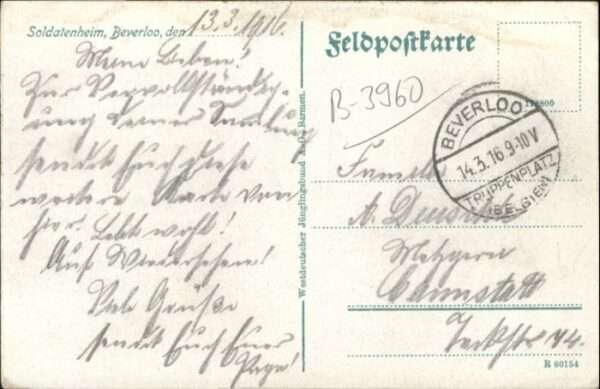 Soldatenheim, Beverloo, den 13.3.1916.
Meine Lieben!
Zur Vervollständig-
ung Deiner Sammlung
sendet Euch diese
weitere Karte von
hier. Lebt wohl!
Auf Wiedersehen!
Viele Grüße
sendet Euch Euer
Westdeutscher Jünglingsbund A. G., Barmen.
Feldpostkarte
B-3960
118800
BEVERLOO
14.3.16 9-10V
TRUPPENPLATZ
(BELGIEN)
Familie
A.
Metzgerei
Cannstatt
Teckstr. 44.
R 60154